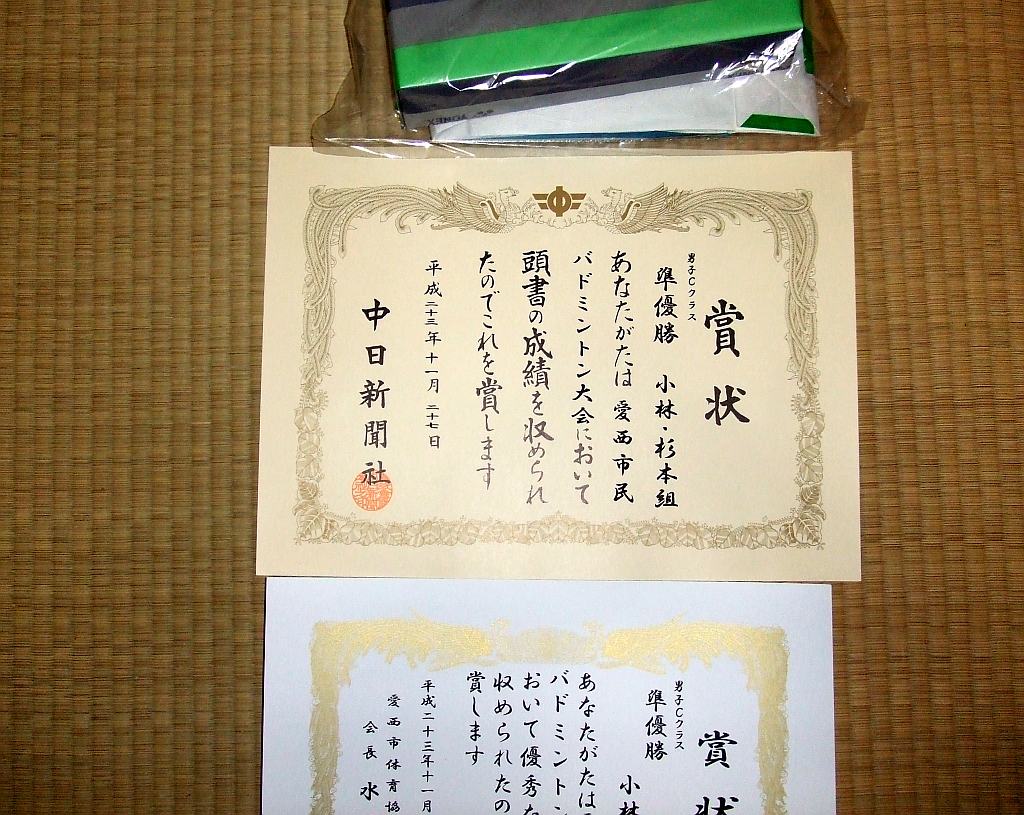 YONEX
賞状
男子Cクラス
準優勝 小林・杉本組
あなたがたは 愛西市民
バドミントン大会において
頭書の成績を収められ
たのでこれを賞します
平成二十三年十一月二十七日
中日新聞社
賞状
男子Cクラス
準優勝 小林
あなたがたは
バドミントン
おいて優秀な
収められたの
賞します
平成二十三年十一月
愛西市体育協
会長 水